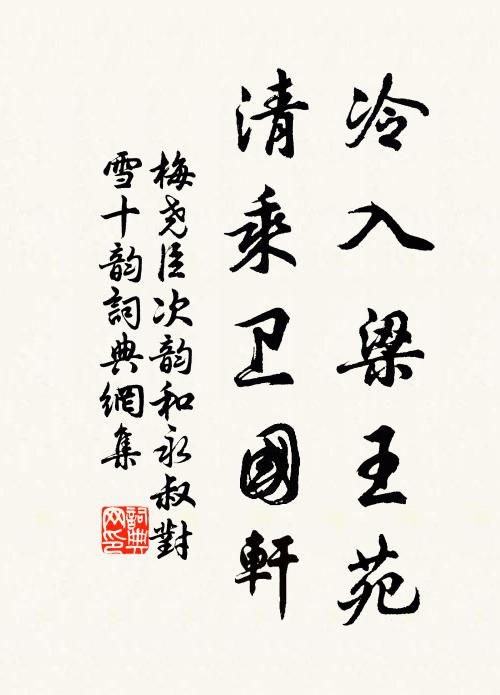 冷入梁王苑
清乘卫國軒
梅尧臣次韵和永叔對
雪十韵詞典網集
詞典网印